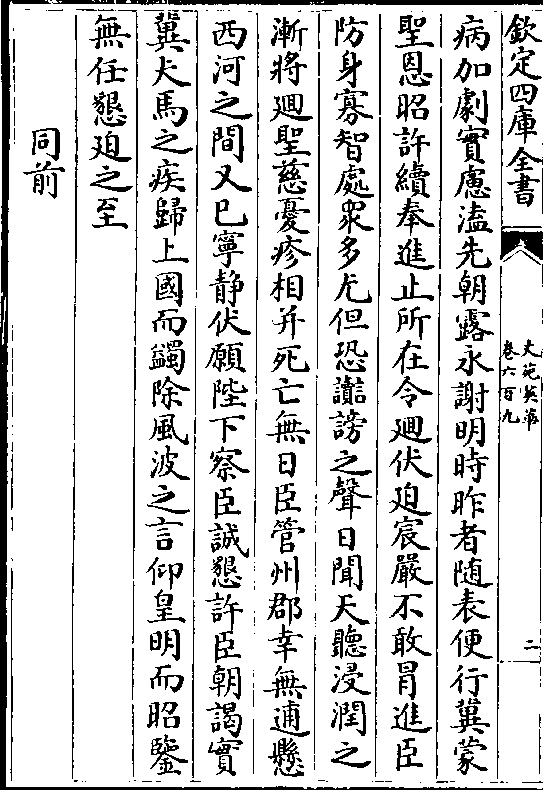 欽定四庫全書
文苑英華
卷六百九
二
病加劇實慮溘先朝露永謝明時昨者随表便行冀蒙
聖恩昭許續奉進止所在令廻伏迫宸嚴不敢冐進臣
防身寡智處衆多尤但恐讟謗之聲日聞天聽浸潤之
漸將廻聖慈憂疹相并死亡無日臣管州郡幸無逋懸
西河之間又已寧静伏願陛下察臣誠懇許臣朝謁實
冀犬馬之疾歸上國而蠲除風波之言仰皇明而昭鑒
無任懇迫之至
同前